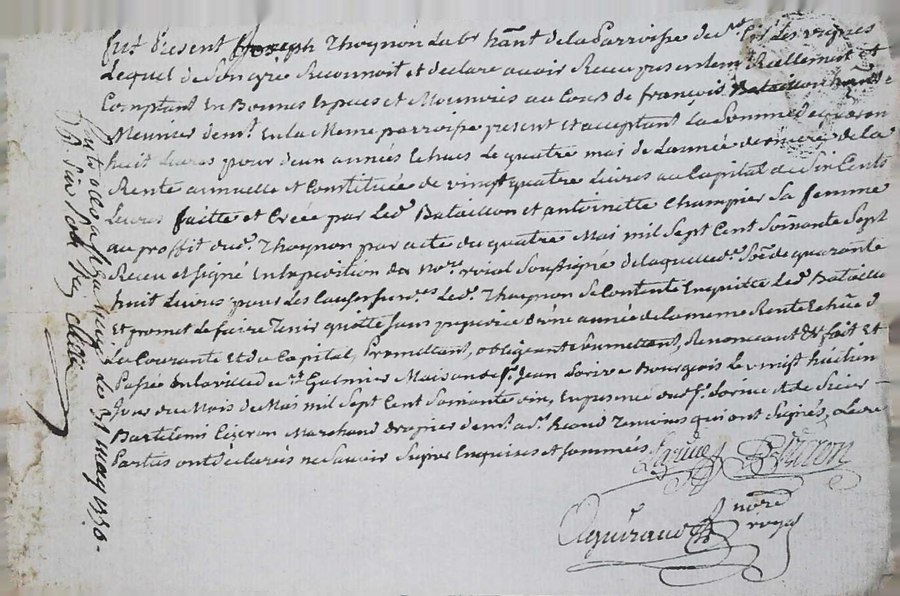 fut Present Joseph Thoynon Lab.r hãnt de la Parroisse de S.t Cir Les vignes
Lequel de Son gré Reconnoit et declare avoir Receu presentem.t Reellement et
Comptant En Bonnes Espuces et Monnoies au Cours de françois Bataillon
Meunier dem.t En La Meme parroisse present Et acceptant La Somme de quaran
huit Livres pour deux années Echues Le quatre mai de L'année derniere de La
Rente annuelle et Constituée de vingt quatre Livres au Capital de Six Cents
Livres faitte et Créée par Led. Bataillon et antoinette Champier Sa femme
au proffit dud. Thoynon par acte du quatre Mai mil Sept Cent Soixante Sept
Receu et Signé En Expedition du no.re royal Soussigné de laquelle d. Sõe de quarante
huit Livres pour Les Causes Sus.es Led. Thoynon Se Contente En quitte Led. Bataillo
Et promet Le faire Tenir quitte Sans prejudice d'une année de la meme Rente Echue
La Courante Et du Capital, Promettant, obligeant Soumettant, Renoncant &.r fait Et
Passée En la ville de S.t Galmier Maison de S.r Jean Bourgeois Le vingt huitien
Jour du Mois de Mai mil Sept Cent Soixante dix, En presence dud. S.r et de Sieur
Bartelemi Cizeron Marchand drapier dem.t ad. Temoins qui ont Signés, a Leure
Parties ont declarés ne Savoir Signer Enquises et Sommées
Cizeron
Aguiraud no.re
royal
a S.t Galmier Le 31 may 1770.
R. Six Sols